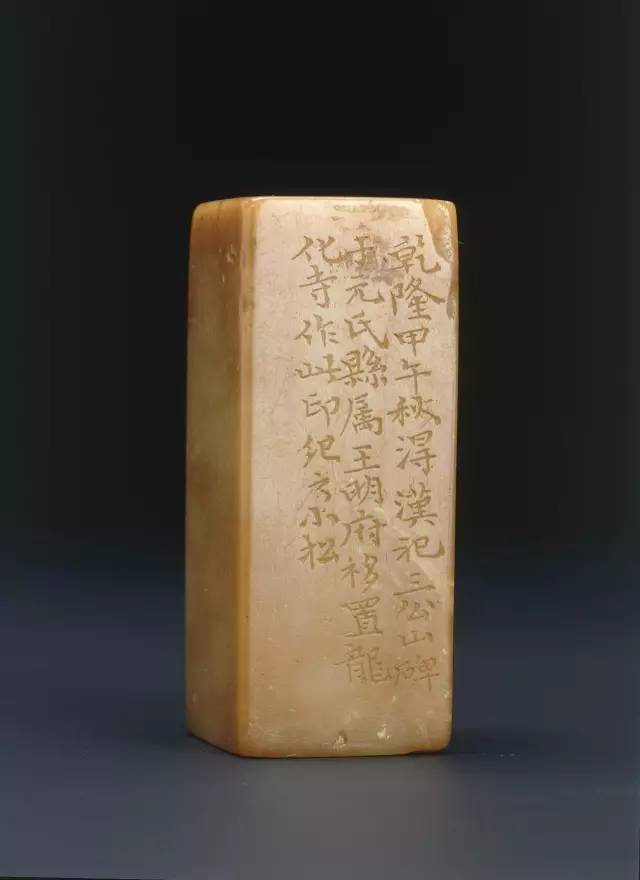 乾隆甲午秋得漢祀三公山碑
于元氏縣属王明府移置龍
化寺作此印紀之小松